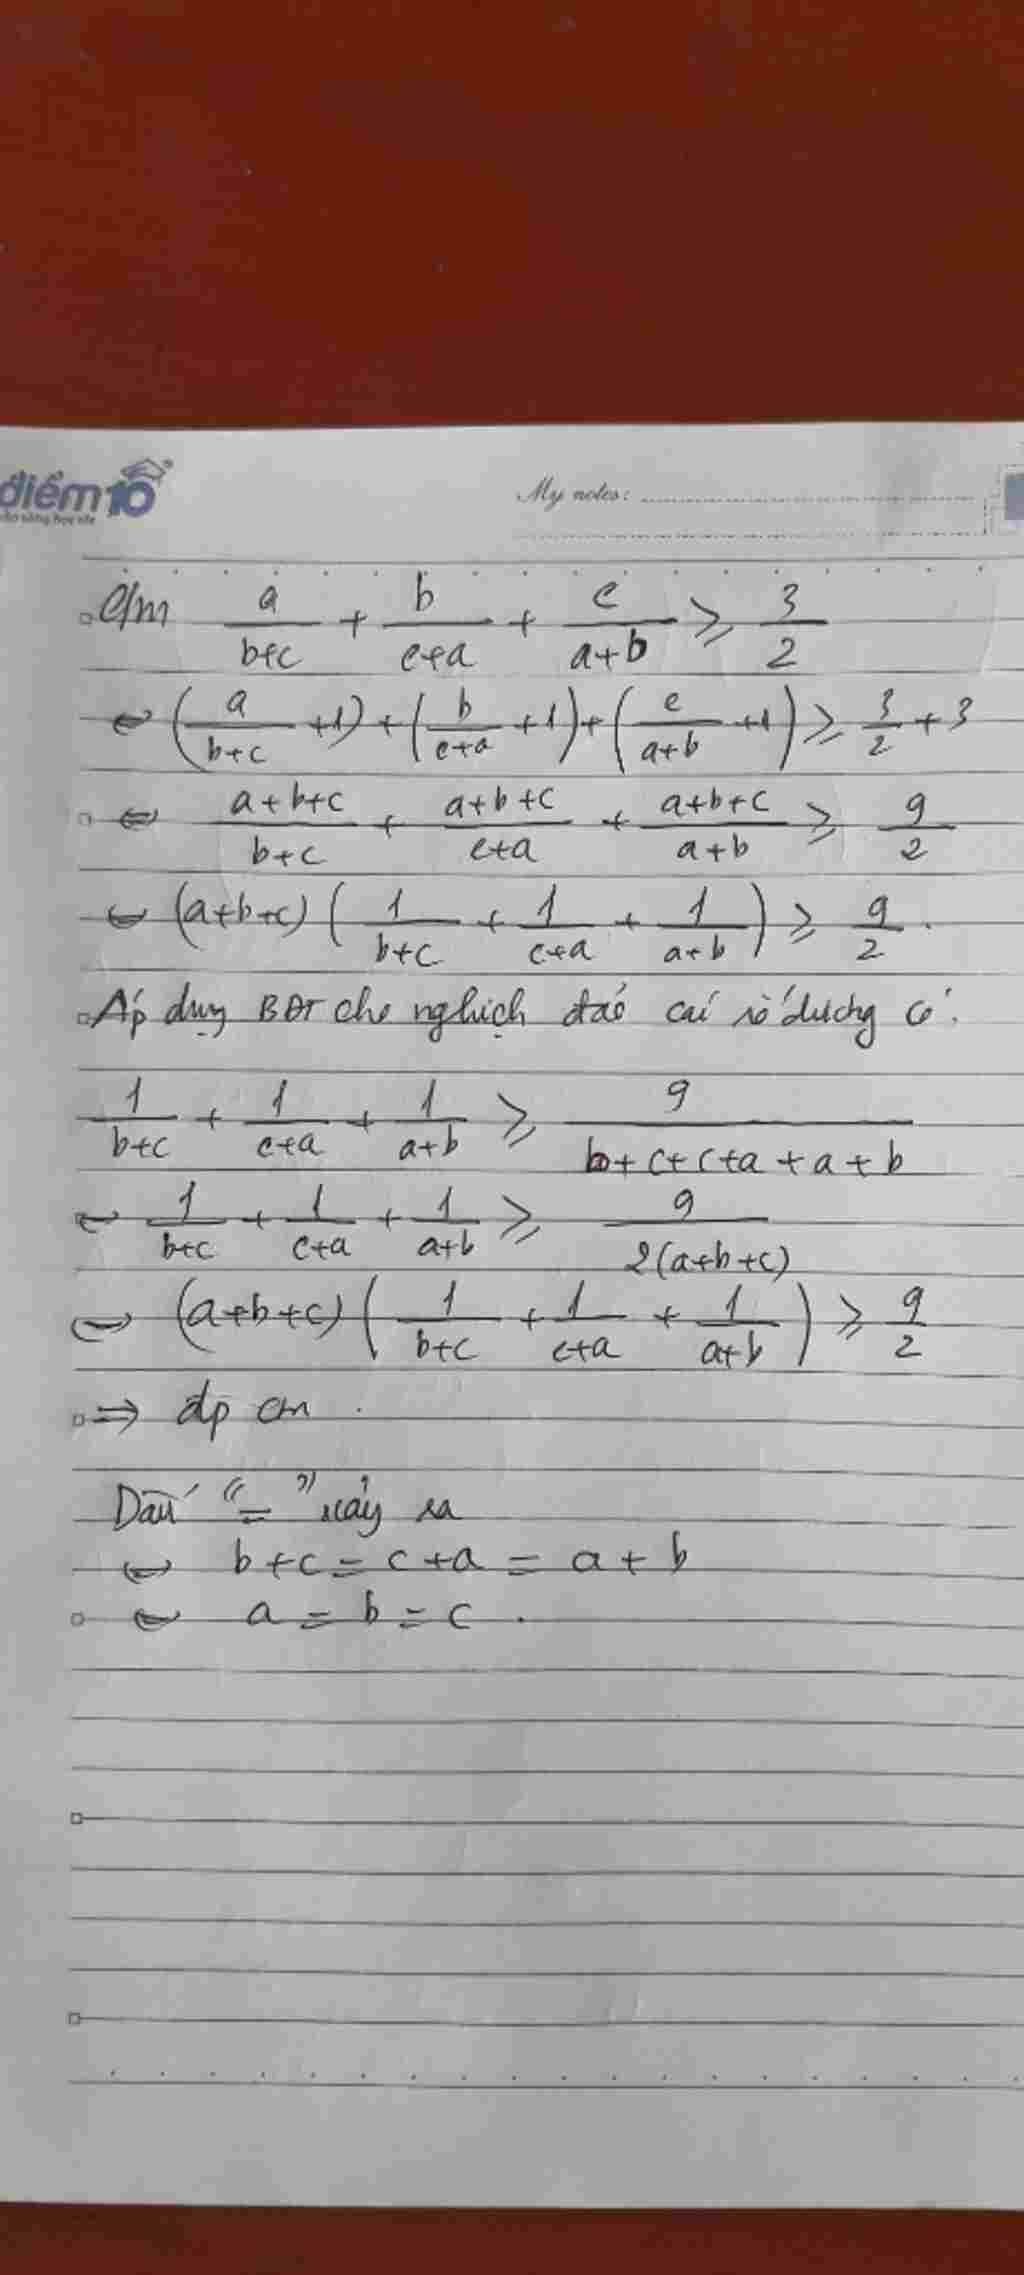 điểm10
My notes:
C/m a/(b+c) + b/(c+a) + c/(a+b) ⩾ 3/2
⇔ (a/(b+c) +1) + (b/(c+a) +1) + (c/(a+b) +1) ⩾ 3/2 + 3
⇔ (a+b+c)/(b+c) + (a+b+c)/(c+a) + (a+b+c)/(a+b) ⩾ 9/2
⇔ (a+b+c) (1/(b+c) + 1/(c+a) + 1/(a+b)) ⩾ 9/2.
Áp dụng BĐT cho nghịch đảo các số dương có:
1/(b+c) + 1/(c+a) + 1/(a+b) ⩾ 9/(b+c+c+a+a+b)
⇔ 1/(b+c) + 1/(c+a) + 1/(a+b) ⩾ 9/(2(a+b+c))
⇔ (a+b+c) (1/(b+c) + 1/(c+a) + 1/(a+b)) ⩾ 9/2
⇒ đpcm.
Dấu "=" xảy ra
⇔ b+c = c+a = a+b
⇔ a = b = c.